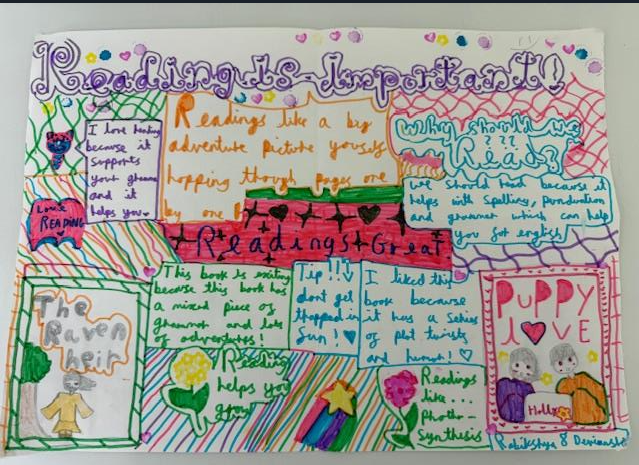 Reading Is Important!!
I love reading
because it
supports
your
and it
helps you
Readings like a big
adventure picture yourself
hopping though pages one
by one!
Why should we
Read?
???
we should read because it
helps with spelling, punduation
and grammar which can help
you for english
Love
READING
Readings Great
The
Raven
heir
This book is exiting
because this book has
a mixed piece of
grammar and lots
of adventures!
Tip!!
dont get
thapped in
Sun!
I liked this
book because
it has a series
of plot twists
and humor!
PUPPY
LOVE
Holly
Reading
helps you
grow
Readings
like...
Photo-
Synthesis